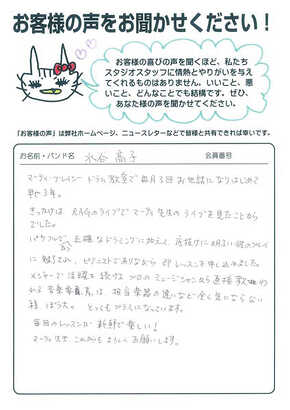 お客様の声をお聞かせください！
お客様の喜びの声を聞くほど、私たち
スタジオスタッフに情熱とやりがいを与え
てくれるものはありません。いいこと、悪
いこと、どんなことでも結構です。ぜひ、
あなた様の声を聞かせてください。
「お客様の声」は弊社ホームページ、ニュースレターなどで皆様と共有できれば幸いです。
お名前・バンド名 水谷 高子 会員番号
マーティ・ブレイシー ドラム教室で毎月3回お世話になりはじめて
約3年。
きっかけは RAGのライブで マーティ先生のライブを見たことから
でした。
パワフルで 正確なドラミングに加えて、底抜けに明るい彼のプレイに
に魅せられ、ピアニストでありながら 即レッスンを申し込みました。
メンテーで活躍を続ける プロのミュージシャンから直接教われる
音楽は、担当楽器の違いなど全く気にならない
程 ぼう大。とっても プラスになっています。
毎回のレッスンが 新鮮で楽しい！
マーティ先生 これからも よろしく お願いします。